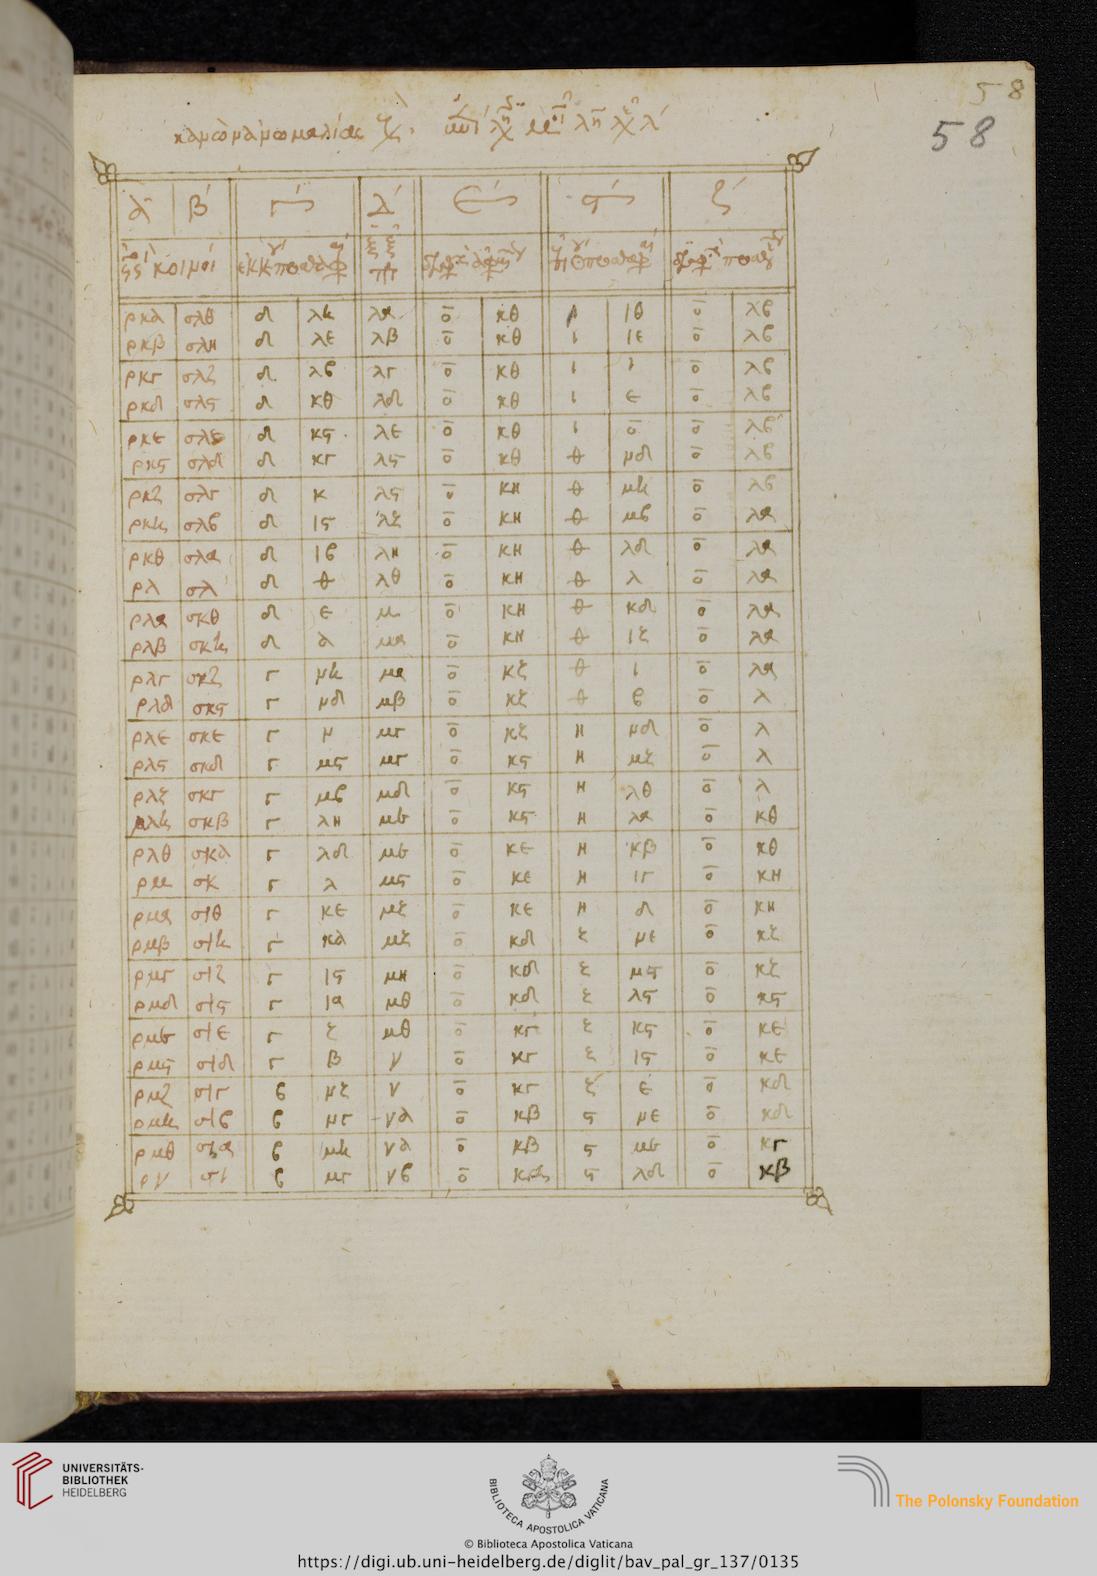 58
58
κανὼν ἀνωμαλίας
α β γ δ ε ϛ ζ
κοινοί
ρκα σλθ δ λη λα ο κθ ι ιθ ο λβ
ρκβ σλη δ λε λβ ο κθ ι ιε ο λβ
ρκγ σλζ δ λβ λγ ο κθ ι ι ο λβ
ρκδ σλϛ δ κθ λδ ο κθ ι ε ο λβ
ρκε σλε δ κϛ λε ο κθ ι ο ο λβ
ρκϛ σλδ δ κγ λϛ ο κθ θ νδ ο λβ
ρκζ σλγ δ κ λϛ ο κη θ μη ο λβ
ρκη σλβ δ ιϛ λζ ο κη θ μβ ο λα
ρκθ σλα δ ιβ λη ο κη θ λδ ο λα
ρλ σλ δ θ λθ ο κη θ λ ο λα
ρλα σκθ δ ε μ ο κη θ κδ ο λα
ρλβ σκη δ α μα ο κη θ ιζ ο λα
ρλγ σκζ γ νη μα ο κζ θ ι ο λα
ρλδ σκϛ γ νδ μβ ο κζ θ β ο λ
ρλε σκε γ ν μγ ο κζ η νδ ο λ
ρλϛ σκδ γ μϛ μγ ο κϛ η μζ ο λ
ρλζ σκγ γ μβ μδ ο κϛ η λθ ο λ
ρλη σκβ γ λη με ο κϛ η λα ο κθ
ρλθ σκα γ λδ με ο κε η κβ ο κθ
ρμ σκ γ λ μϛ ο κε η ιγ ο κη
ρμα σιθ γ κε μζ ο κε η δ ο κη
ρμβ σιη γ κα μζ ο κδ ζ νε ο κζ
ρμγ σιζ γ ιϛ μη ο κδ ζ μϛ ο κζ
ρμδ σιϛ γ ια μθ ο κδ ζ λϛ ο κϛ
ρμε σιε γ ζ μθ ο κγ ζ κϛ ο κε
ρμϛ σιδ γ β ν ο κγ ζ ιϛ ο κε
ρμζ σιγ β νζ ν ο κγ ζ ε ο κδ
ρμη σιβ β νγ να ο κβ ϛ νε ο κδ
ρμθ σια β μη να ο κβ ϛ με ο κγ
ρν σι β μγ νβ ο ϛ λδ ο κβ
UNIVERSITÄTS-
BIBLIOTHEK
HEIDELBERG
BIBLIOTECA APOSTOLICA VATICANA
The Polonsky Foundation
© Biblioteca Apostolica Vaticana
https://digi.ub.uni-heidelberg.de/diglit/bav_pal_gr_137/0135